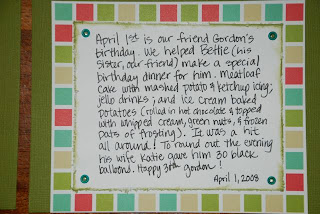 April 1st is our friend Gordon's
birthday. We helped Bettie (his
sister, our friend) make a special
birthday dinner for him. Meatloaf
cake with mashed potato & ketchup icing;
jello drinks; and ice cream baked
potatoes (rolled in hot chocolate & topped
with whipped cream, green nuts, & frozen
pats of frosting). It was a hit
all around! To round out the evening
his wife Katie gave him 30 black
balloons. Happy 30th gordon!
April 1, 2008